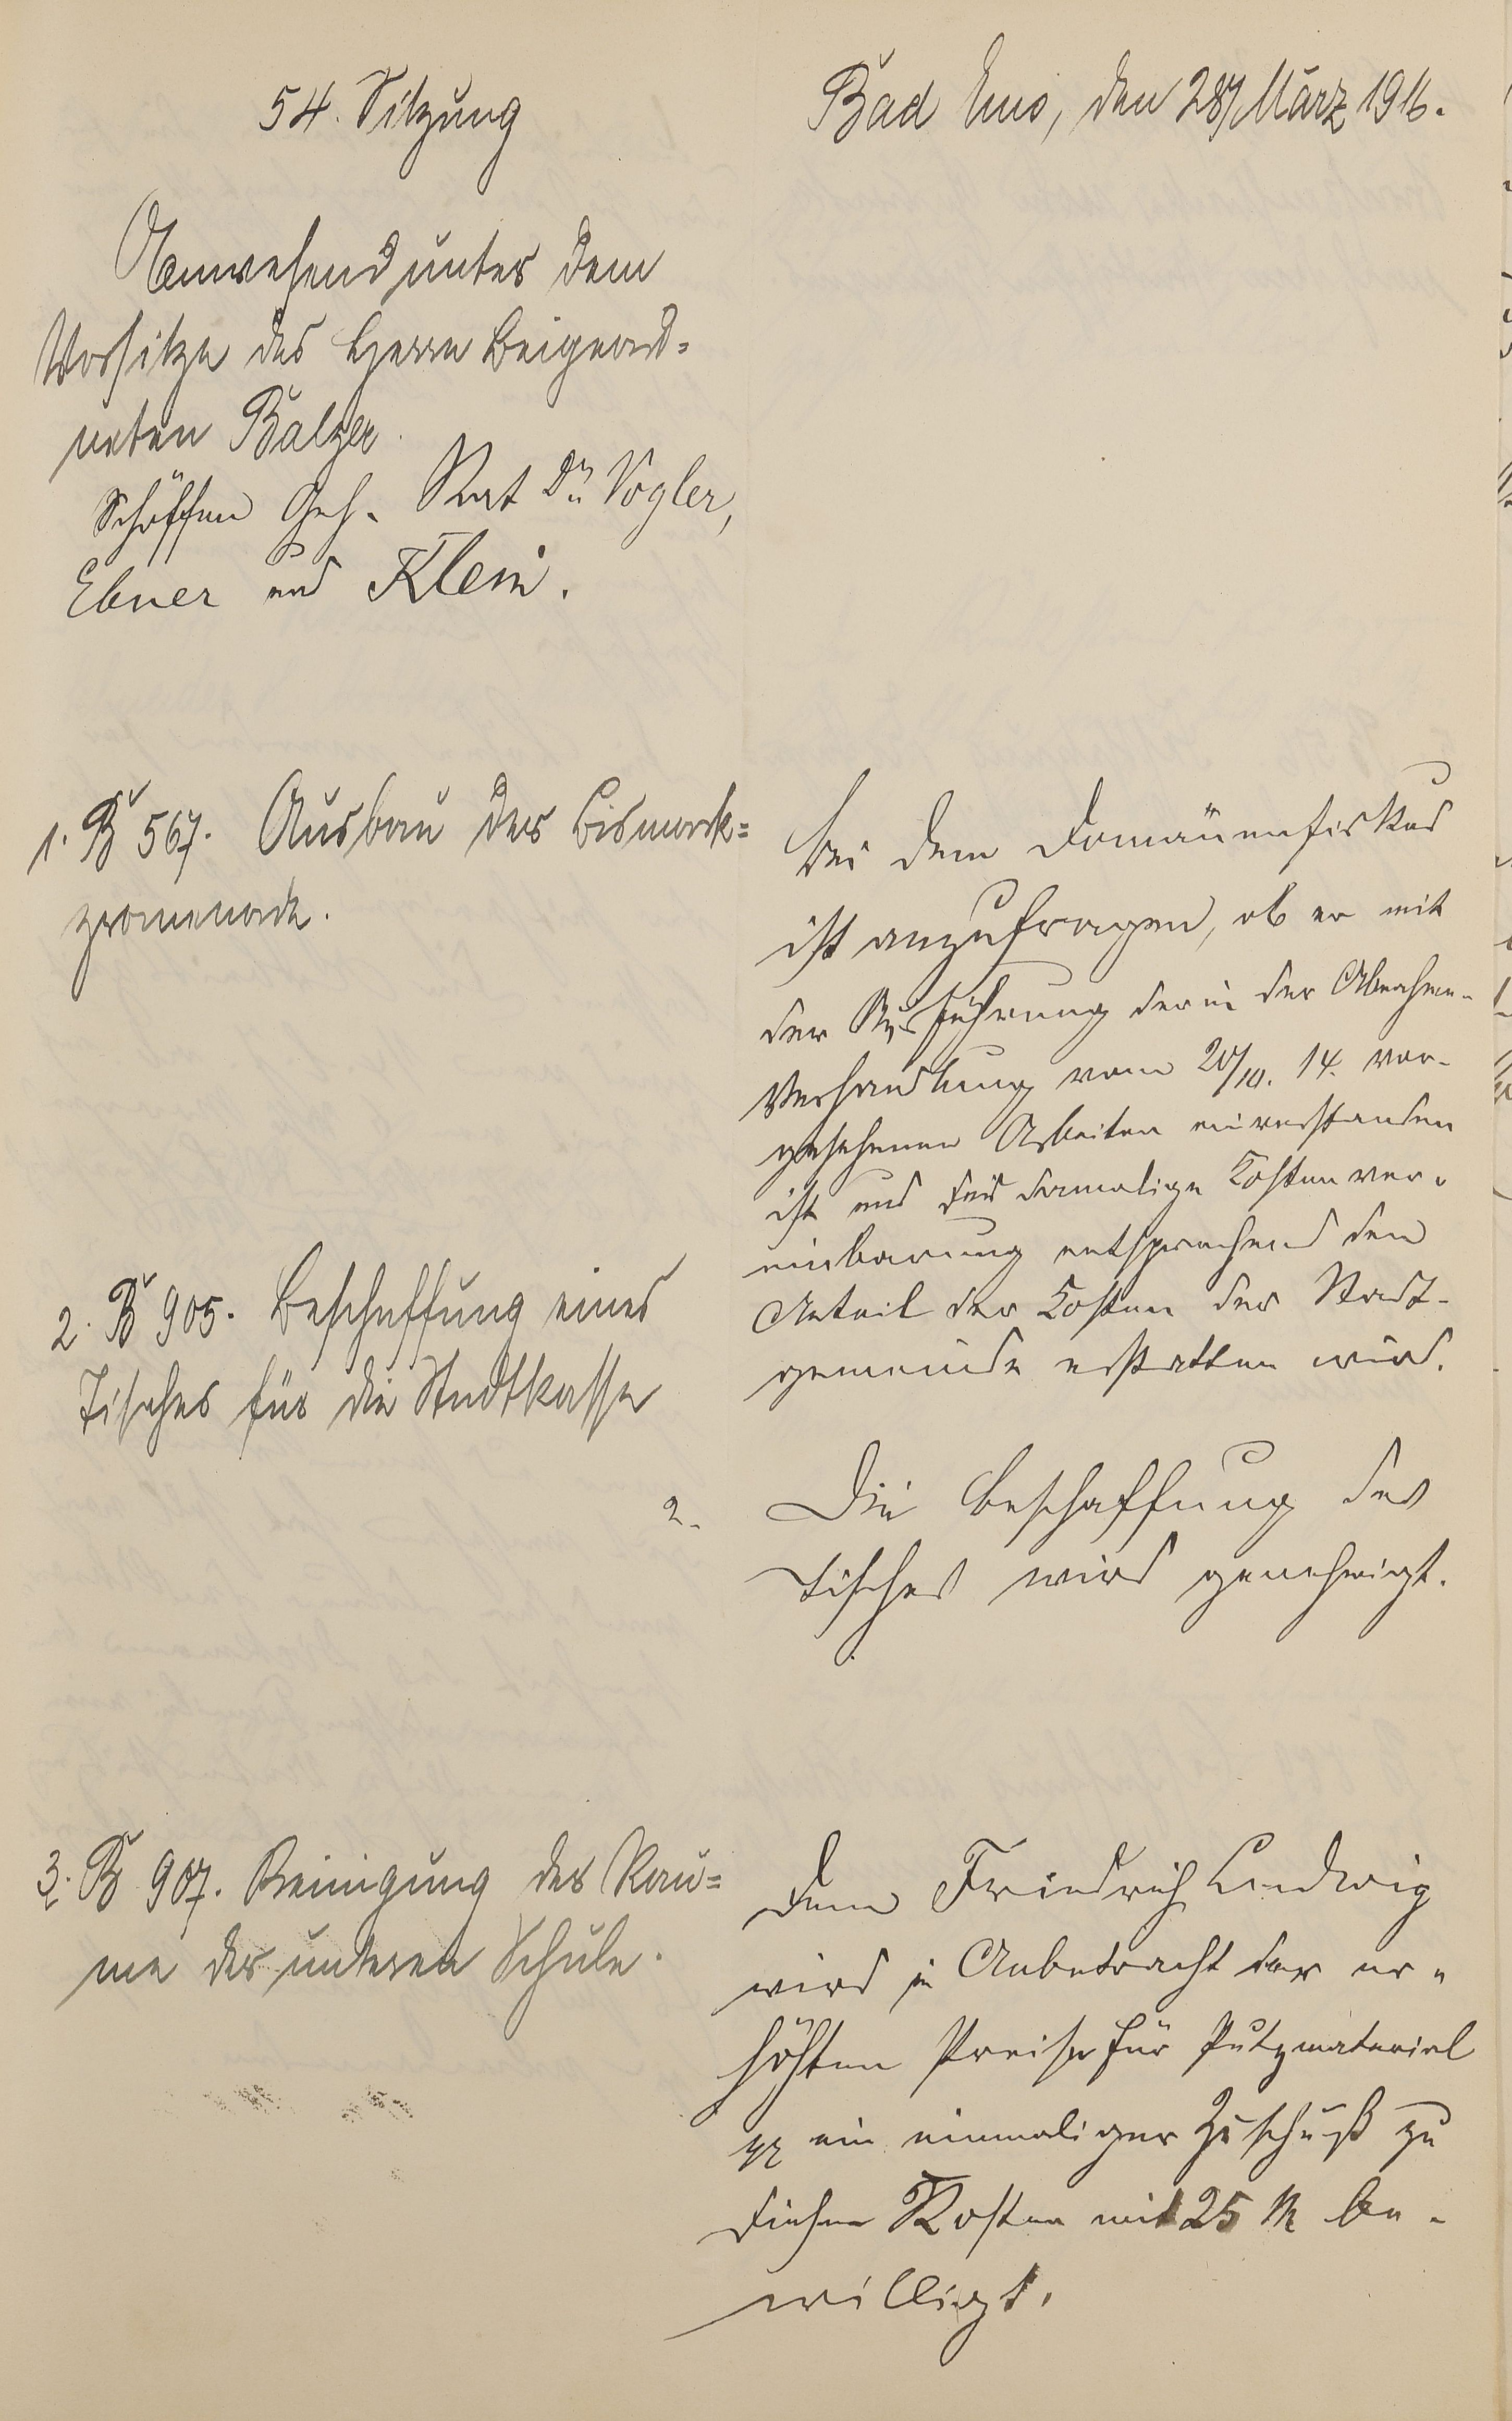 54. Sitzung
Bad Ems, den 28/März 1916.
Anwesend unter dem
Vorsitze des Herrn Beigeord-
neten Balzer.
Schöffen Geh. Rat Dr. Vogler,
Ebner und Klein.
1. B 567. Ausbau der Bismark-
promenade.
Bei dem Domänenfiskus
ist anzufragen, ob er mit
der Ausführung der in der Abnahme-
Verhandlung vom 20/10. 14. vor-
gesehenen Arbeiten einverstanden
ist und die damalige Kostenver-
einbarung entsprechend den
Anteil der Kosten der Stadt-
gemeinde erstatten wird.
2. B 905. Beschaffung eines
Tisches für die Stadtkasse
2. Die Beschaffung des
Tisches wird genehmigt.
3. B 907. Reinigung der Räu-
me der unteren Schule.
Dem Friedrich Ludwig
wird in Anbetracht der er-
höhten Preise für Putzmaterial
pp ein einmaliger Zuschuß zu
diesen Kosten mit 25 M be-
willigt.